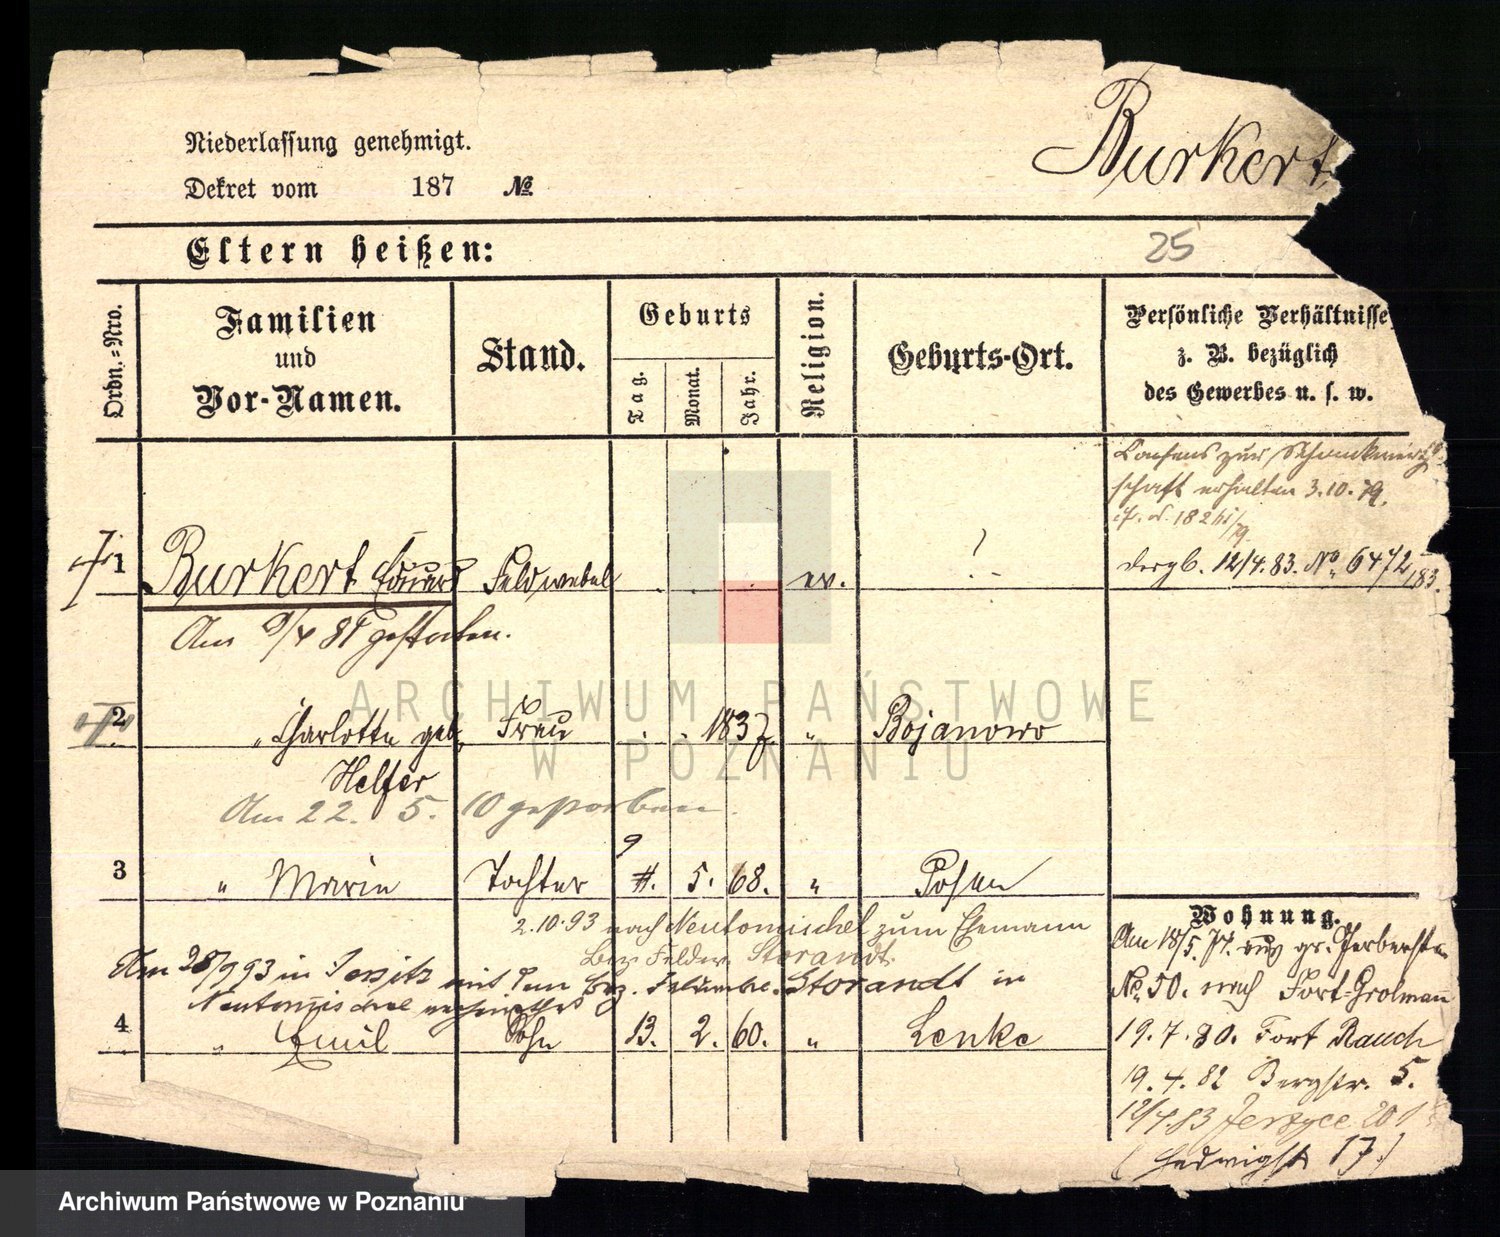 Burkert
Niederlassung genehmigt.
Dekret vom 187 №
Eltern heißen:
25
Ordn.=Nro.
Familien
und
Vor-Namen.
Stand.
Geburts
Tag.
Monat.
Jahr.
Religion.
Geburts-Ort.
Persönliche Verhältnisse
z. B. bezüglich
des Gewerbes u. s. w.
Consens zur Schankwirth
schaft erhalten 3.10.79.
1 Burkert Eduard Feldwebel ev.
dergl. 12/4.83. No 6472/83.
Am 9/4 81 gestorben.
2 " Charlotte geb. Frau 1837 " Bojanowo
Helfer
Am 22. 5. 10 gestorben.
9
3 " Marie Tochter 5. 68. " Posen
2.10.93 nach Neutomischel zum Ehemann
Bez. Feldw. Storandt.
Am 28/9 93 in Jersitz mit dem Bez. Feldwebel Storandt in
Neutomischel verheirathet
4 " Emil Sohn 13. 2. 60. " Lenke
Wohnung.
Am 18/5. aus gr. Gerberstr.
No 50. nach Fort Grolmann
19.7.80. Fort Rauch
19.4.82 Bergstr. 5.
12/4.83 Jerzyce 201
(Hedwigstr 17.)
ARCHIWUM PAŃSTWOWE
W POZNANIU
Archiwum Państwowe w Poznaniu